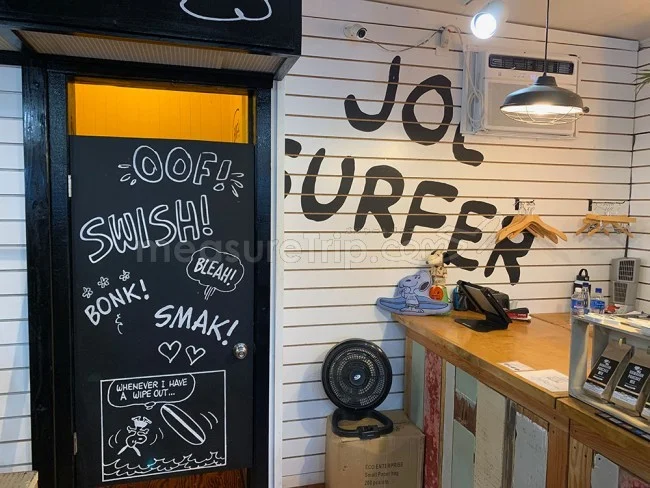 JOE
SURFER
OOF!
SWISH!
BLEAH!
BONK!
SMAK!
WHENEVER I HAVE
A WIPE OUT...
measuretrip.com
ECO ENTERPRISE